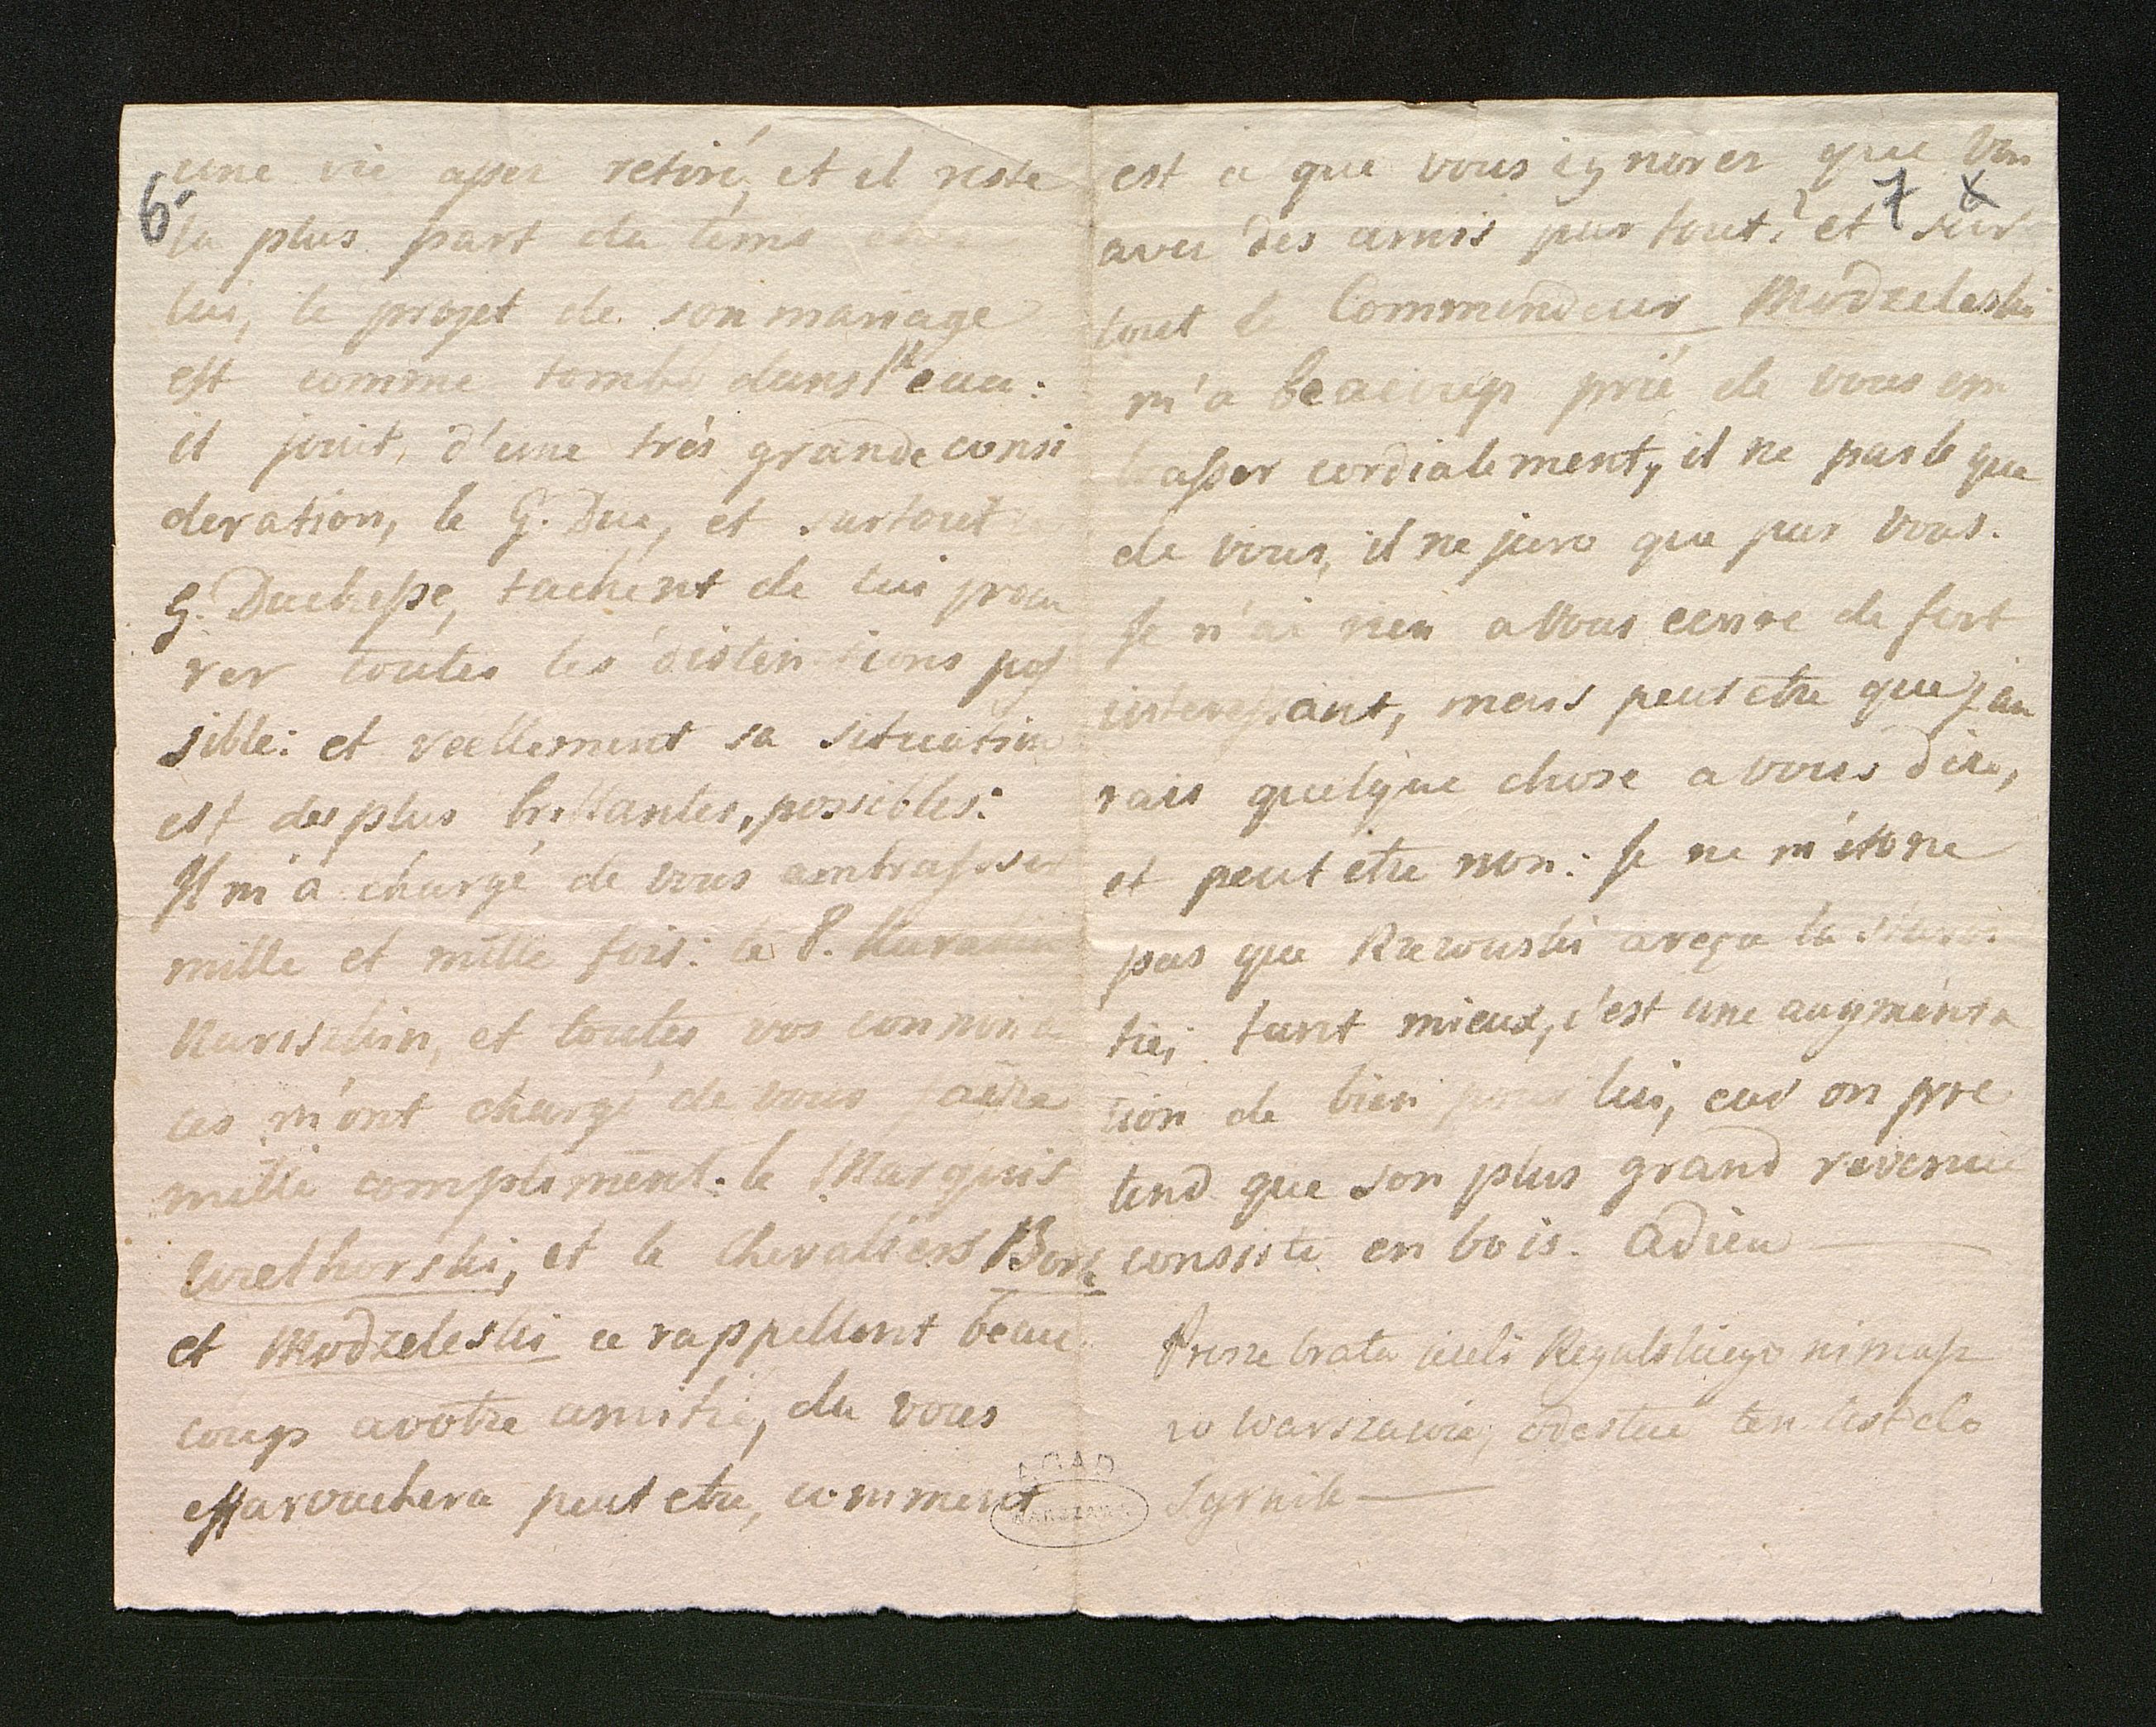 6-
une vie assez retiré, et il reste
la plus part du tems
lui, le projet de son mariage
est comme tombé dans l'eau:
il jouit, d'une très grande consi
deration, le G. Duc, et surtout
G. Duchesse, tachent de lui procu
rer toutes les distinctions pos
sible: et reellement sa situation
est des plus brillantes, possibles:
Il m'a chargé de vous ambrasser
mille et mille fois: le P. Kurakin
et toutes vos connoissa
ces m'ont chargé de vous faire
mille compliment. le Marquis
Wielhorski, et le Chevaliers Bork
et Modzeleski ce rappellent beau
coup a votre amitié, du vous
effarouchera peut etre, comment
7 x
est a que vous ignorez que vous
avez des amis par tout? et sur
tout le Commendeur Modzeleski
m'a beaucup prié de vous em
brasser cordialement, il ne parle que
de vous, il ne jure que par vous.
Je n'ai rien a vous ecrire de fort
interessant, mais peut etre que j'au
rais quelque chose a vous dire,
et peut etre non: Je ne m'etone
pas que Rzewuski a reçu la staros
tie, tant mieux, c'est une augmenta
tion de bien pour lui, car on pre
tend que son plus grand revenue
consiste en bois. Adieu
Prosze brata ieeli Regulskiego nimasz
w Warszawie, odesłac ten list do
AGAD
WARSZAWA